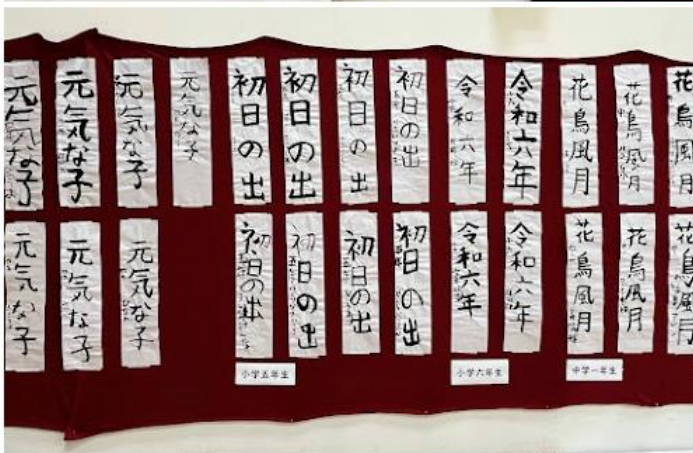 元気な子
元気な子
元気な子
元気な子
初日の出
初日の出
初日の出
初日の出
令和六年
令和六年
花鳥風月
花鳥風月
花鳥風月
元気な子
元気な子
元気な子
初日の出
初日の出
初日の出
初日の出
令和六年
令和六年
花鳥風月
花鳥風月
花鳥風月
小学五年生
小学六年生
中学一年生